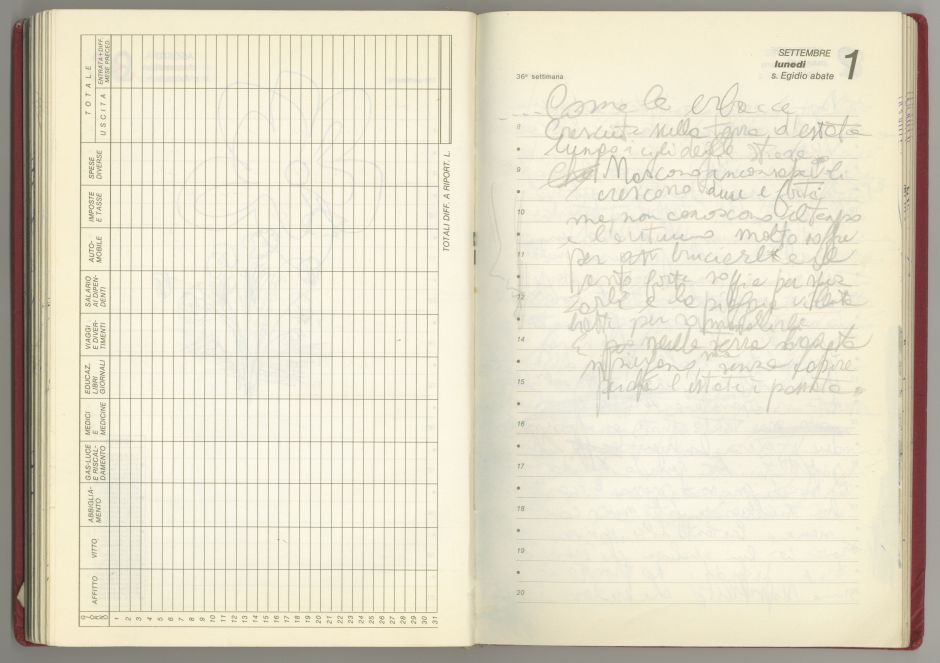 TOTALE
ENTRATA+DIFF. MESE PRECED.
USCITA
SPESE DIVERSE
IMPOSTE E TASSE
AUTO-MOBILE
SALARIO AI DIPEN-DENTI
VIAGGI E DIVER-TIMENTI
EDUCAZ. LIBRI GIORNALI
MEDICI E MEDICINE
GAS-LUCE E RISCAL-DAMENTO
ABBIGLIA-MENTO
VITTO
AFFITTO
GIORNO
1 2 3 4 5 6 7 8 9 10 11 12 13 14 15 16 17 18 19 20 21 22 23 24 25 26 27 28 29 30 31
TOTALI DIFF. A RIPORT. L.
SETTEMBRE
lunedì
s. Egidio abate
1
36ª settimana
Come le erbacce
8
Cresciute nella terra d'estate
lungo i cigli delle strade
9
Nascono inconsapevoli
crescono dure e forti
10
ma non conoscono il tempo
e l'autunno molto soffre
11
per bruciarle e il
vento forte soffia per spez
12
zarle e la pioggia violenta
batte per
14
E poi nella terra
senza capire
15
perché l'estate è passata.
16
17
18
19
20